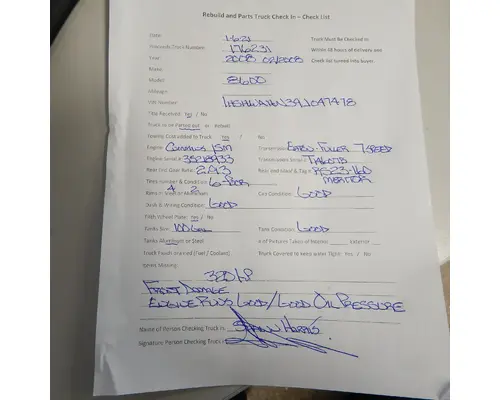 Rebuild and Parts Truck Check In – Check List
Date: 1-6-21 Truck Must Be Checked In
Truck Number: 176231 Within 48 hours of delivery and
Year: 2008 02/2008 Check list turned into buyer.
Make:
Model: 8600
Mileage:
VIN Number: 1HSHWAHN39J047478
Title Received: Yes / No
Truck is on Person out or Period
Towing Cost added to Truck Yes / No
Engine: Cummins ISM Transmission: Eaton-Fuller 7 Speed
Engine Serial# 35218933 Transmission Serial#
Rear End Gear Ratio: 2.93 Rear End Gear# & Tag# RS23-160
Tires number & Condition: 6-Poor Meritor
4 2
Rims # Steel or Aluminum Cab Condition: Good
Dash & Wiring Condition: Good
Fifth Wheel Plate: Yes / No
Tanks Size: 100 Gal Tank Condition: Good
Tanks Aluminum or Steel # of Pictures Taken of Interior Exterior
Truck Fluids Drained (Fuel / Coolant) Truck Covered to keep water Tight: Yes / No
Items Missing:
320 HP
Front Damage
Engine Runs Good/Good Oil Pressure
Name of Person Checking Truck In: Shawn Harris
Signature Person Checking Truck